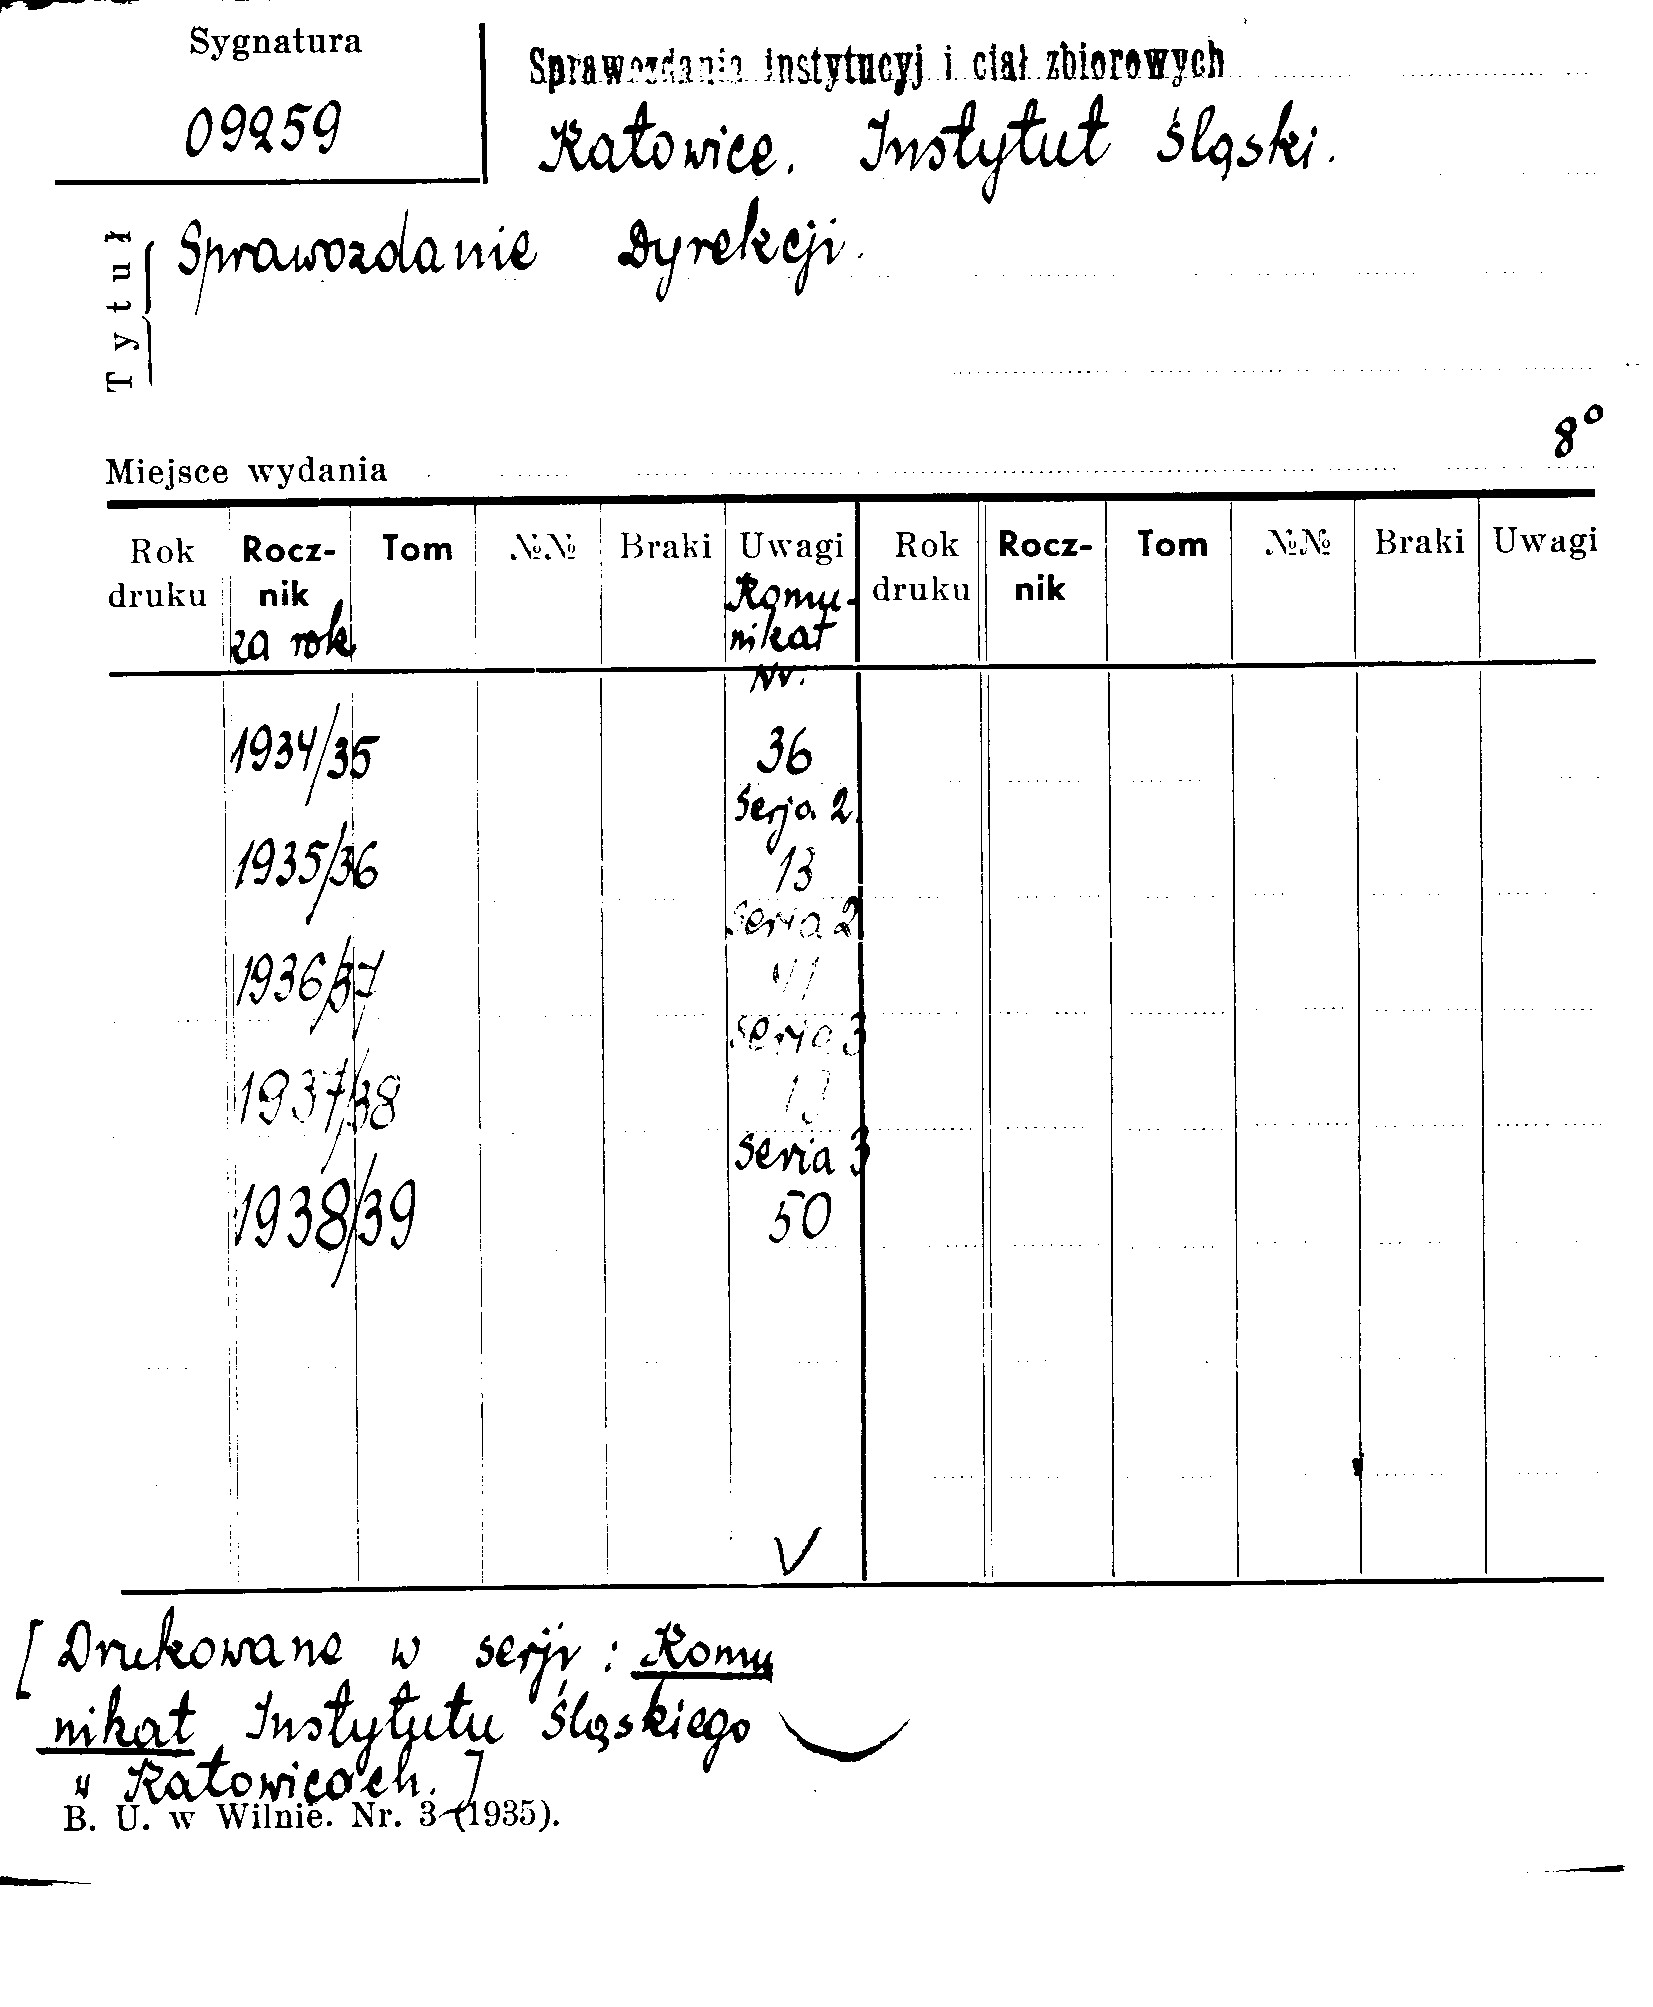 Sygnatura
09259
Sprawozdania instytucyj i ciał zbiorowych
Katowice. Instytut Śląski.
Tytuł
Sprawozdanie Dyrekcji.
8°
Miejsce wydania
Rok druku Rocz-nik Tom №№ Braki Uwagi Rok druku Rocz-nik Tom №№ Braki Uwagi
za rok Komu-nikat Nr.
1934/35 36
Serja 2
1935/36 13
Seria 2
1936/37 41
Seria 3
1937/38 13
Seria 3
1938/39 50
V
[Drukowane w serji: Komu
nikat Instytutu Śląskiego
w Katowicach.]
B. U. w Wilnie. Nr. 3 (1935).